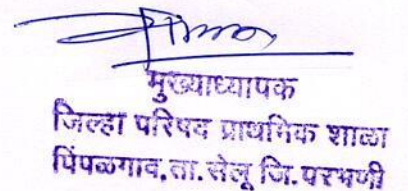 मुख्याध्यापक
जिल्हा परिषद प्राथमिक शाळा
पिंपळगाव, ता. सेलू जि. परभणी